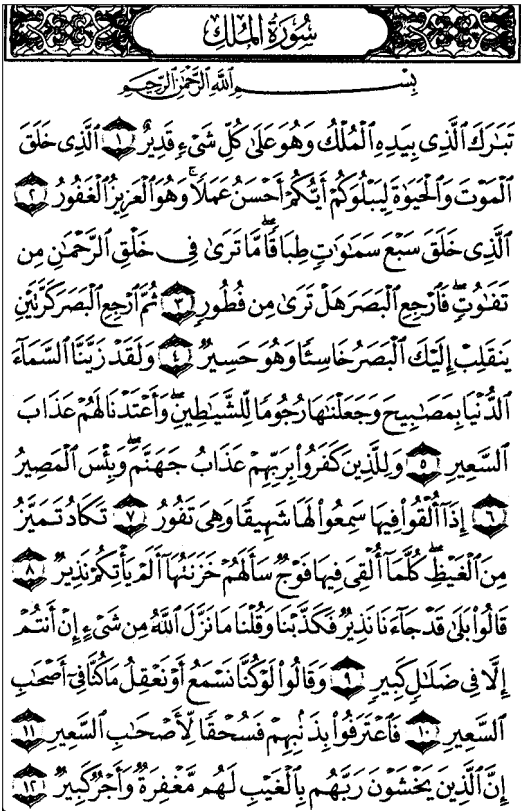 سُورَةُ المُلكِ
بِسْمِ اللَّهِ الرَّحْمَٰنِ الرَّحِيمِ
تَبَٰرَكَ ٱلَّذِى بِيَدِهِ ٱلْمُلْكُ وَهُوَ عَلَىٰ كُلِّ شَىْءٍ قَدِيرٌ ١ ٱلَّذِى خَلَقَ
ٱلْمَوْتَ وَٱلْحَيَوٰةَ لِيَبْلُوَكُمْ أَيُّكُمْ أَحْسَنُ عَمَلًا ۚ وَهُوَ ٱلْعَزِيزُ ٱلْغَفُورُ ٢
ٱلَّذِى خَلَقَ سَبْعَ سَمَٰوَٰتٍ طِبَاقًا ۖ مَّا تَرَىٰ فِى خَلْقِ ٱلرَّحْمَٰنِ مِن
تَفَٰوُتٍ ۖ فَٱرْجِعِ ٱلْبَصَرَ هَلْ تَرَىٰ مِن فُطُورٍ ٣ ثُمَّ ٱرْجِعِ ٱلْبَصَرَ كَرَّتَيْنِ
يَنقَلِبْ إِلَيْكَ ٱلْبَصَرُ خَاسِئًا وَهُوَ حَسِيرٌ ٤ وَلَقَدْ زَيَّنَّا ٱلسَّمَآءَ
ٱلدُّنْيَا بِمَصَٰبِيحَ وَجَعَلْنَٰهَا رُجُومًا لِّلشَّيَٰطِينِ ۖ وَأَعْتَدْنَا لَهُمْ عَذَابَ
ٱلسَّعِيرِ ٥ وَلِلَّذِينَ كَفَرُوا۟ بِرَبِّهِمْ عَذَابُ جَهَنَّمَ ۖ وَبِئْسَ ٱلْمَصِيرُ
٦ إِذَآ أُلْقُوا۟ فِيهَا سَمِعُوا۟ لَهَا شَهِيقًا وَهِىَ تَفُورُ ٧ تَكَادُ تَمَيَّزُ
مِنَ ٱلْغَيْظِ ۖ كُلَّمَآ أُلْقِىَ فِيهَا فَوْجٌ سَأَلَهُمْ خَزَنَتُهَآ أَلَمْ يَأْتِكُمْ نَذِيرٌ ٨
قَالُوا۟ بَلَىٰ قَدْ جَآءَنَا نَذِيرٌ فَكَذَّبْنَا وَقُلْنَا مَا نَزَّلَ ٱللَّهُ مِن شَىْءٍ إِنْ أَنتُمْ
إِلَّا فِى ضَلَٰلٍ كَبِيرٍ ٩ وَقَالُوا۟ لَوْ كُنَّا نَسْمَعُ أَوْ نَعْقِلُ مَا كُنَّا فِىٓ أَصْحَٰبِ
ٱلسَّعِيرِ ١٠ فَٱعْتَرَفُوا۟ بِذَنۢبِهِمْ فَسُحْقًا لِّأَصْحَٰبِ ٱلسَّعِيرِ ١١
إِنَّ ٱلَّذِينَ يَخْشَوْنَ رَبَّهُم بِٱلْغَيْبِ لَهُم مَّغْفِرَةٌ وَأَجْرٌ كَبِيرٌ ١٢